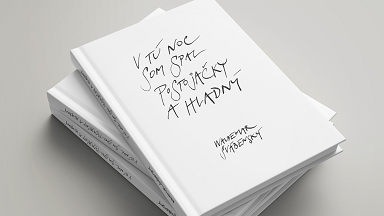 V TÚ NOC
SOM SPAL
POSTOJAČKY
A HLADNÝ
WALDEMAR
ŠVÁBENSKÝ